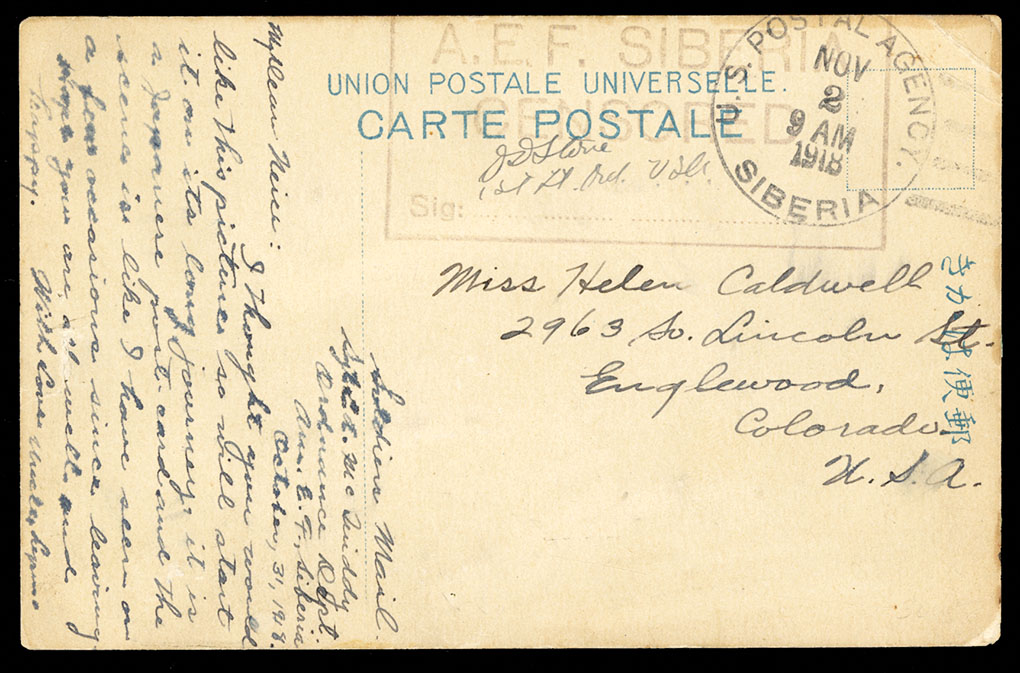 A.E.F. SIBERIA
CENSORED
Sig:
1st Lt. Ord. U.S.A.
U. S. POSTAL AGENCY.
NOV
2
9 AM
1918
SIBERIA
UNION POSTALE UNIVERSELLE.
CARTE POSTALE
きが便郵
Miss Helen Caldwell
2963 So. Lincoln St.
Englewood,
Colorado.
U. S. A.
Soldiers Mail.
Sgt. Mc Quiddy
Ordnance Dept
Am. E. F., Siberia
October, 31, 1918.
My Dear Neice:
I thought you would
like this picture so will start
it on its long journey, it is
a Japanese post card and the
scene is like I have seen on
a few occasions since leaving.
Hope you are all well and
happy.
With love Uncle